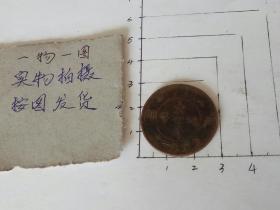 一物一图
实物拍摄
按图发货
5
4
3
2
1
1 2 3 4